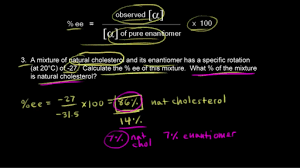 % ee = observed [α] / [α] of pure enantiomer x 100
3. A mixture of natural cholesterol and its enantiomer has a specific rotation
(at 20°C) of -27. Calculate the % ee of this mixture. What % of the mixture
is natural cholesterol?
% ee = -27 / -31.5 x 100 = 86% nat cholesterol
14%
7% nat chol 7% enantiomer